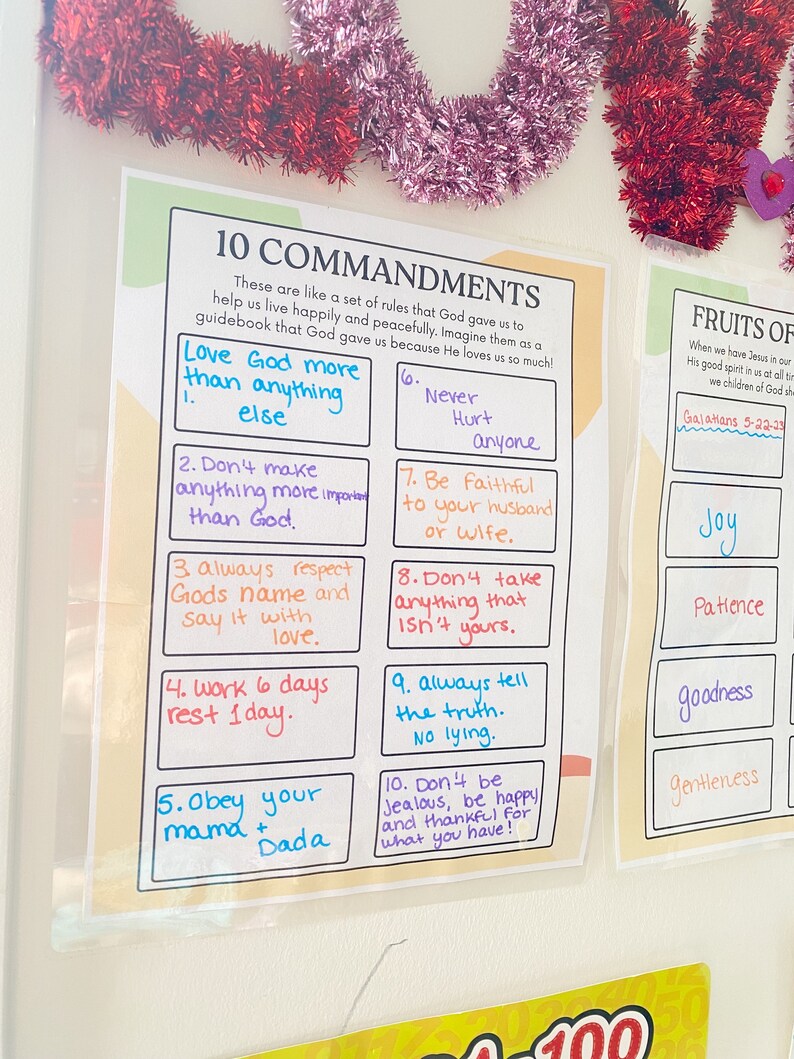 10 COMMANDMENTS
These are like a set of rules that God gave us to
help us live happily and peacefully. Imagine them as a
guidebook that God gave us because He loves us so much!
Love God more
than anything
1. else
2. Don't make
anything more important
than God.
3. always respect
Gods name and
say it with
love.
4. work 6 days
rest 1 day.
5. Obey your
mama +
Dada
6.
Never
Hurt
anyone
7. Be Faithful
to your husband
or wife.
8. Don't take
anything that
isn't yours.
9. always tell
the truth.
No lying.
10. Don't be
jealous, be happy
and thankful for
what you have!
FRUITS OF
When we have Jesus in our
His good spirit in us at all
we children of God
Galatians 5-22-23
Joy
Patience
goodness
gentleness
100
50